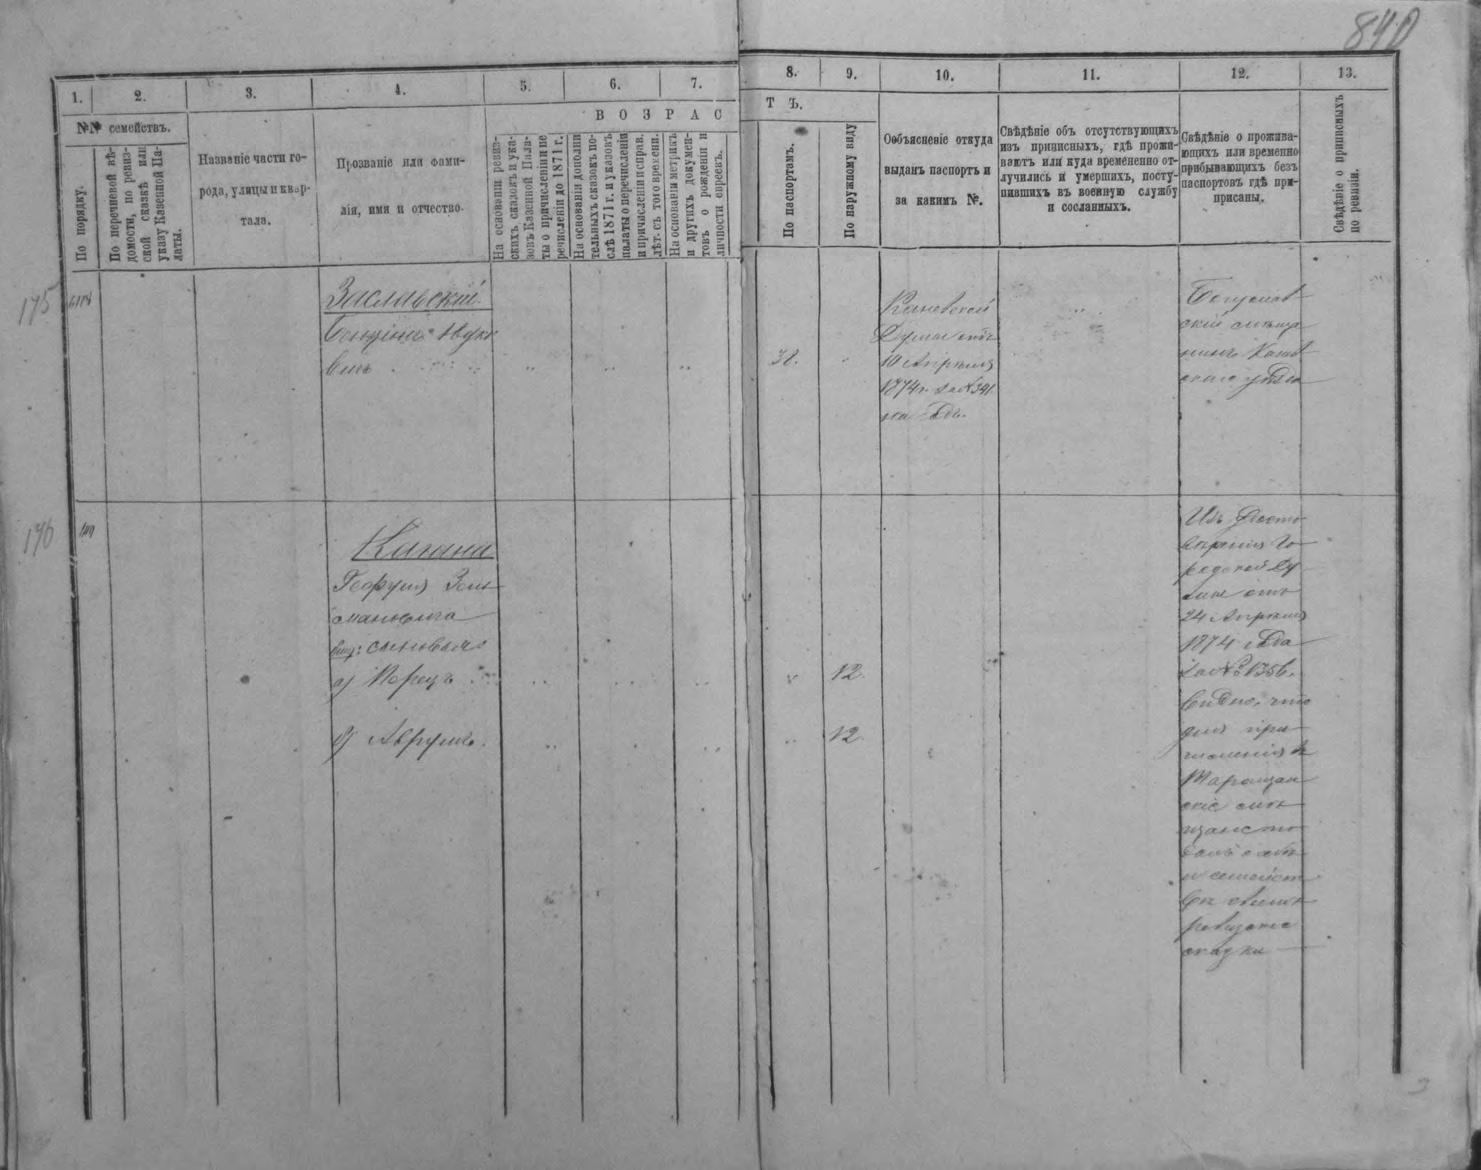 840
1.
2.
3.
4.
5.
6.
7.
8.
9.
10.
11.
12.
13.
№№ семействъ.
По порядку.
По перечневой вѣ-
домости, по ревиз-
ской сказкѣ или
указу Казенной Па-
латы.
Названіе части го-
рода, улицы и квар-
тала.
Прозваніе или фами-
лія, имя и отчество.
ВОЗРАС
ТЪ.
На основаніи ревиз-
скихъ сказокъ и ука-
зовъ Казенной Пала-
ты о причисленіи пе
речисленіи до 1871 г.
На основаніи дополни
тельныхъ сказокъ по-
слѣ 1871 г. и указовъ
палаты о перечисленіи
и причисленіи и справ.
лѣт. съ того времени.
На основаніи метрикъ
и другихъ докумен-
товъ о рожденіи и
личности евреевъ.
По паспортамъ.
По наружному виду
Объясненіе откуда
выданъ паспортъ и
за какимъ №.
Свѣдѣніе объ отсутствующихъ
изъ приписныхъ, гдѣ прожи-
ваютъ или куда временно от-
лучились и умершихъ, посту-
пившихъ въ военную службу
и сосланныхъ.
Свѣдѣніе о прожива-
ющихъ или временно
прибывающихъ безъ
паспортовъ гдѣ при-
писаны.
Свѣдѣніе о приписныхъ
по ревизіи.
175
Заславскій
вичъ
32.
Каневской
Думы отъ
10 Апрѣля
1874 г. за №341
на годъ.
Богуслав
скій мѣща
нинъ Канев
скаго уѣзда
176
Кагана
Гершуня Зель
мановича
сыновья
а) Перецъ
12.
б) Аврумъ.
12
Изъ
го
родской Ду
мы отъ
24 Апрѣля
1874 года
за №1356.
видно, что
для при
численія къ
Таращан
скіе мѣ
щанство
и семейст
ревизскіе
сказки